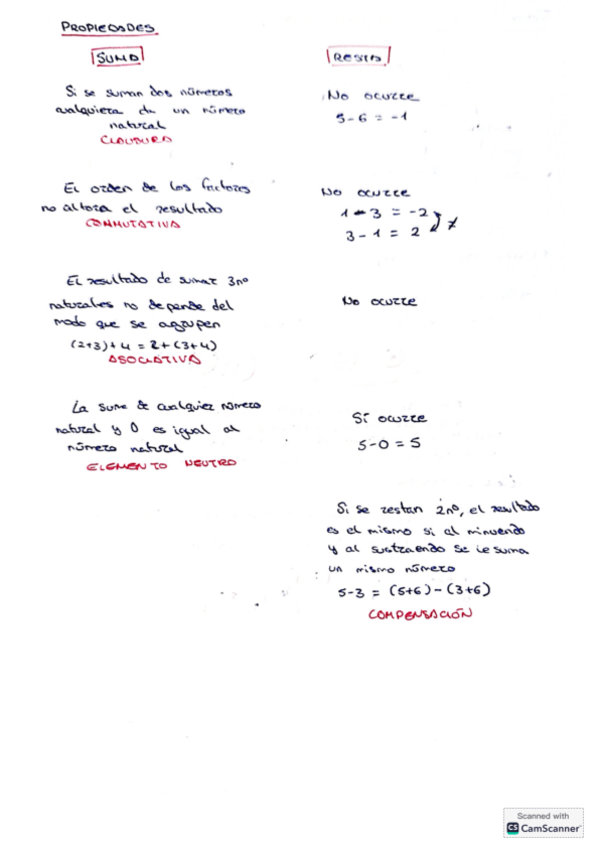 PROPIEDADES
SUMA
Si se suman dos números
cualquiera da un número
natural
CLAUSURA
El orden de los factores
no altera el resultado
CONMUTATIVA
El resultado de sumar 3nº
naturales no depende del
modo que se agrupen
(2+3)+4 = 2+(3+4)
ASOCIATIVA
La suma de cualquier número
natural y 0 es igual al
número natural
ELEMENTO NEUTRO
RESTA
No ocurre
5-6 = -1
No ocurre
1-3 = -2
3-1 = 2 ≠
No ocurre
Sí ocurre
5-0 = 5
Si se restan 2nº, el resultado
es el mismo si al minuendo
y al sustraendo se le suma
un mismo número
5-3 = (5+6)-(3+6)
COMPENSACIÓN
Scanned with
CS CamScanner